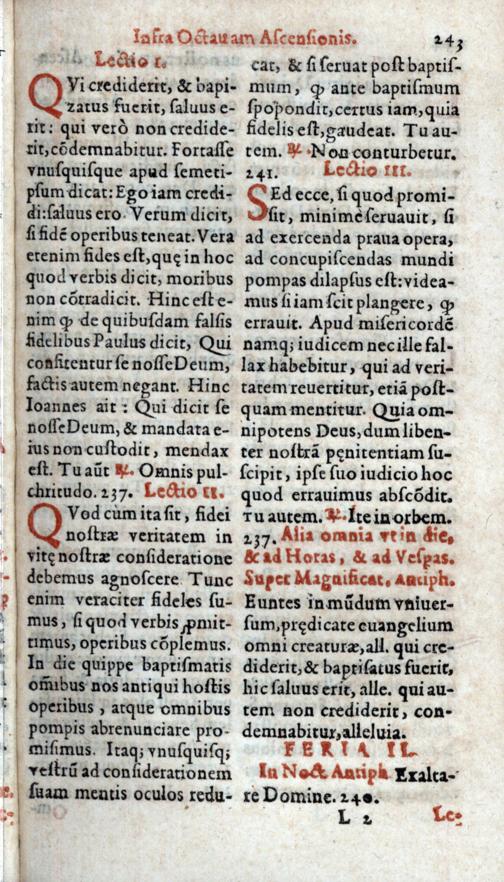 Infra Octauam Ascensionis. 243
Lectio I.
QVi crediderit, & bapi-
zatus fuerit, saluus e-
rit: qui verò non credide-
rit, cõdemnabitur. Fortasse
vnusquisque apud semeti-
psum dicat: Ego iam credi-
di: saluus ero. Verum dicit,
si fidẽ operibus teneat. Vera
etenim fides est, quę in hoc
quod verbis dicit, moribus
non cõtradicit. Hinc est e-
nim ꝙ de quibusdam falsis
fidelibus Paulus dicit, Qui
confitentur se nosse Deum,
factis autem negant. Hinc
Ioannes ait: Qui dicit se
nosse Deum, & mandata e-
ius non custodit, mendax
est. Tu aũt ℟. Omnis pul-
chritudo. 237. Lectio II.
QVod cùm ita sit, fidei
nostræ veritatem in
vitę nostræ consideratione
debemus agnoscere. Tunc
enim veraciter fideles su-
mus, si quod verbis ꝓmit-
timus, operibus cõplemus.
In die quippe baptismatis
om̃ibus nos antiqui hostis
operibus, atque omnibus
pompis abrenunciare pro-
misimus. Itaq; vnusquisq;
vestrũ ad considerationem
suam mentis oculos redu-
cat, & si seruat post baptis-
mum, ꝙ ante baptismum
spopondit, certus iam, quia
fidelis est, gaudeat. Tu au-
tem. ℟. Non conturbetur.
241. Lectio III.
SEd ecce, si quod promi-
sit, minimè seruauit, si
ad exercenda praua opera,
ad concupiscendas mundi
pompas dilapsus est: videa-
mus si iam scit plangere, ꝙ
errauit. Apud misericordẽ
namq; iudicem nec ille fal-
lax habebitur, qui ad veri-
tatem reuertitur, etiã post-
quam mentitur. Quia om-
nipotens Deus, dum liben-
ter nostrã pęnitentiam su-
scipit, ipse suo iudicio hoc
quod errauimus abscõdit.
Tu autem. ℟. Ite in orbem.
237. Alia omnia vt in die,
& ad Horas, & ad Vespas.
Super Magnificat, Antiph.
Euntes in mũdum vniuer-
sum, prędicate euangelium
omni creaturæ, all. qui cre-
diderit, & baptisatus fuerit,
hic saluus erit, alle. qui au-
tem non crediderit, con-
demnabitur, alleluia.
FERIA II.
In Noct Antiph Exalta-
re Domine. 240.
L 2 Le-